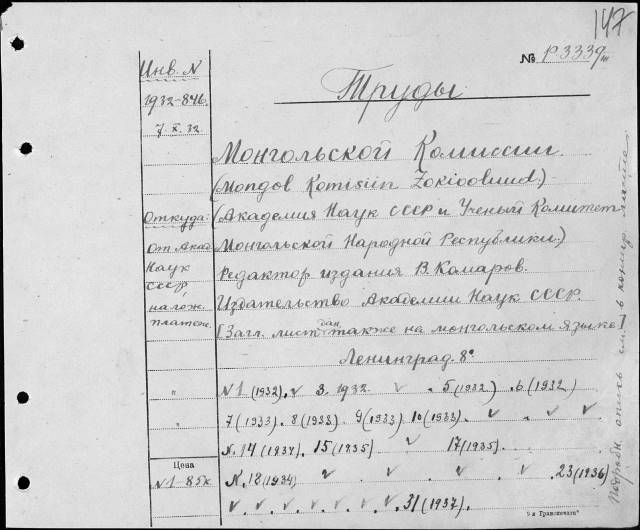 147
№ Р3339/III
Труды
Монгольской Комиссии.
(Mongol Komisiin Zokioolnud)
(Академия Наук СССР и Ученый Комитет
Монгольской Народной Республики.)
Редактор издания В. Комаров.
Издательство Академии Наук СССР.
[Загл. лист дан также на монгольском языке]
Ленинград. 8°
N 1 (1932), v 3. 1932. v . 5 (1932) . 6 (1932)
7 (1933) . 8 (1933) 9 (1933) 10 (1933) . v . v v
N. 14 (1934) . 15 (1935) v 17 (1935) .
N. 18 (1934) v . v . v . v . 23 (1936)
v . v . v . v . v . v . v . 31 (1937) .
Инв. N
1932-846.
7. X. 32
Откуда:
От Акад.
Наук
СССР
налож.
платеж.
"
"
Цена
N 1 - 85к
Подробн. опись см. в